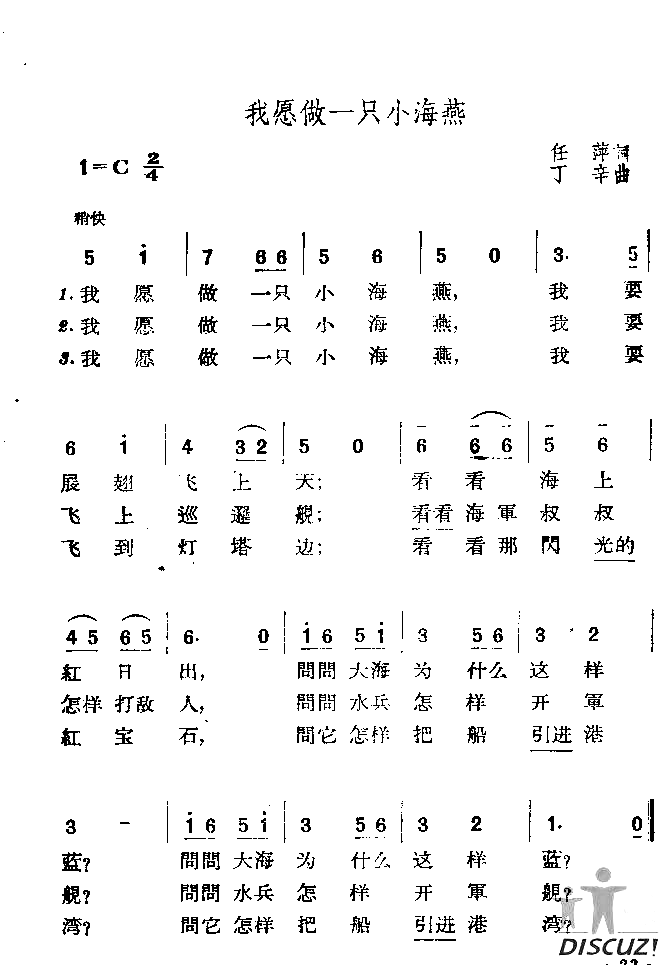 我愿做一只小海燕
1=C 2/4
任萍词
丁辛曲
稍快
5 i | 7 6 6 | 5 6 | 5 0 | 3. 5
1.我愿做一只小海燕，我要
2.我愿做一只小海燕，我要
3.我愿做一只小海燕，我要
6 i | 4 3 2 | 5 0 | 6 6 6 | 5 6
展翅飞上天；看看海上
飞上巡邏舰；看看海軍叔叔
飞到灯塔边；看看那閃光的
4 5 6 5 | 6. 0 | i 6 5 i | 3 5 6 | 3 2
紅日出，問問大海为什么这样
怎样打敌人，問問水兵怎样开軍
紅宝石，問它怎样把船引进港
3 - | i 6 5 i | 3 5 6 | 3 2 | 1. 0
蓝？問問大海为什么这样蓝？
舰？問問水兵怎样开軍舰？
湾？問它怎样把船引进港湾？
DISCUZ!